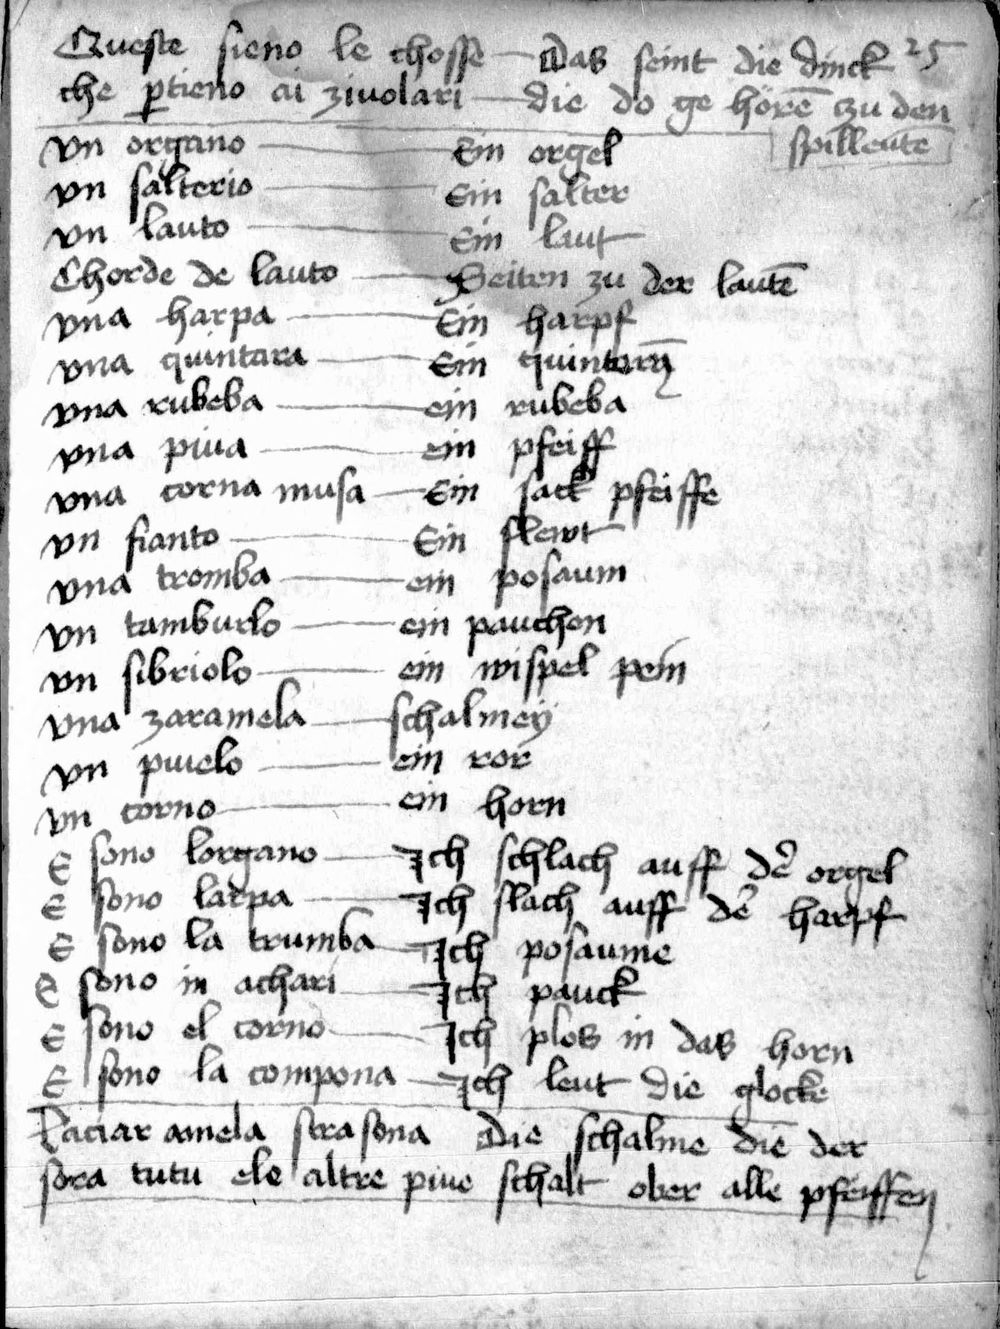 Queste sieno le chosse — Das seint die dinck 25
che ꝑtieno ai zivolari — die do ge hörē czu den
spilleutē
vn organo — Ein orgel
vn salterio — Ein salter
vn lauto — Ein laut
Chorde de lauto — Seiten zu der lautē
vna harpa — Ein harpf
vna quintara — Ein quintern̄
vna rubeba — ein rubeba
vna piua — ein pfeiff
vna corna musa — Ein sack pfeiffe
vn fianto — Ein flewt
vna tromba — ein posaum
vn tamburlo — ein pauchen
vn sibriolo — ein wispel pein
vna zaramela — schalmeÿ
vn piuelo — ein ror
vn corno — ein horn
E sono lorgano — Ich schlach auff dē orgel
E sono larpa — Ich slach auff dē harpf
E sono la trumba — Ich posaume
E sono in achari — Ich pauck
E sono el corno — Ich plos in das horn
E sono la compona — Ich leut die glocke
Laciar amela sera sona Die schalme die der
sora tutu ele altre piue schalt ober alle pfeiffen